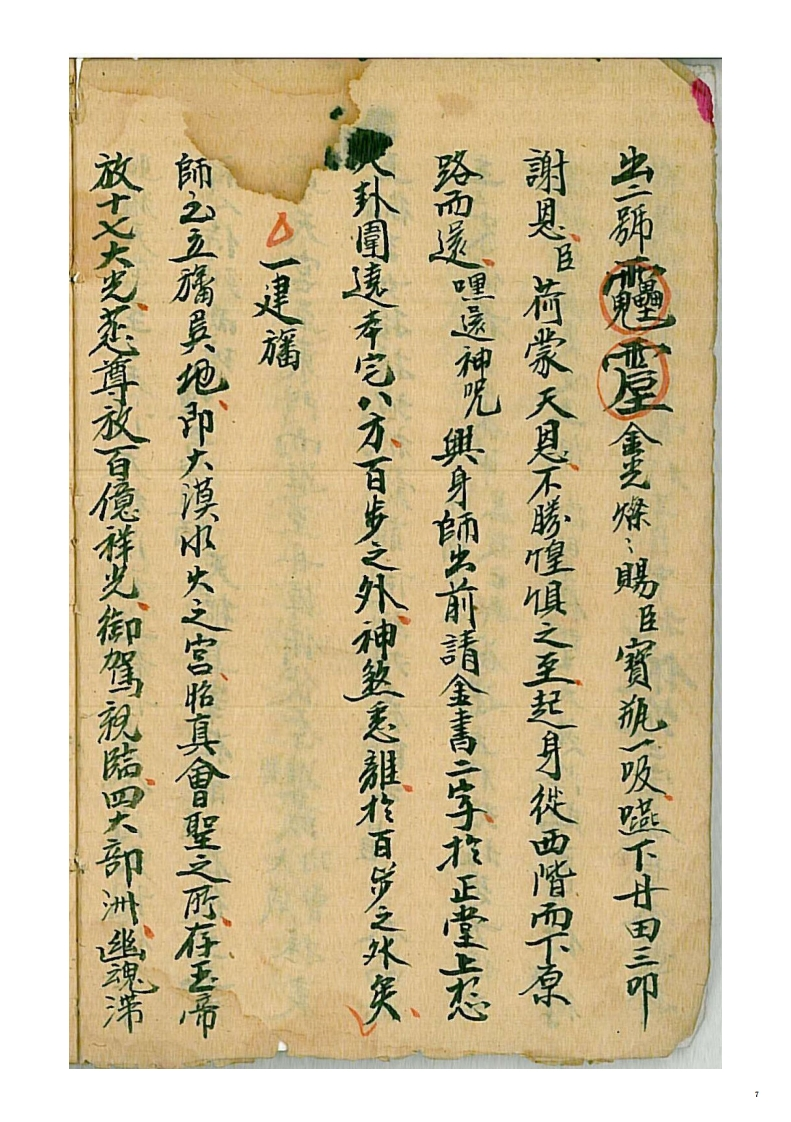 出二號金光燦〻賜臣寶瓶一吸嚥下丹田三叩
謝恩臣荷蒙天恩不勝惶惧之至起身從西階而下原
路而還嘿還神咒與身師出前請金書二字於正堂上想
八卦圍遶本宅八方百步之外神煞悉離於百步之外矣
一建旛
師立旛吳地即大漠水火之宮昭真會聖之所存玉帝
放十七大光慈尊放一百億祥光御駕親臨四大部洲幽魂滯
7